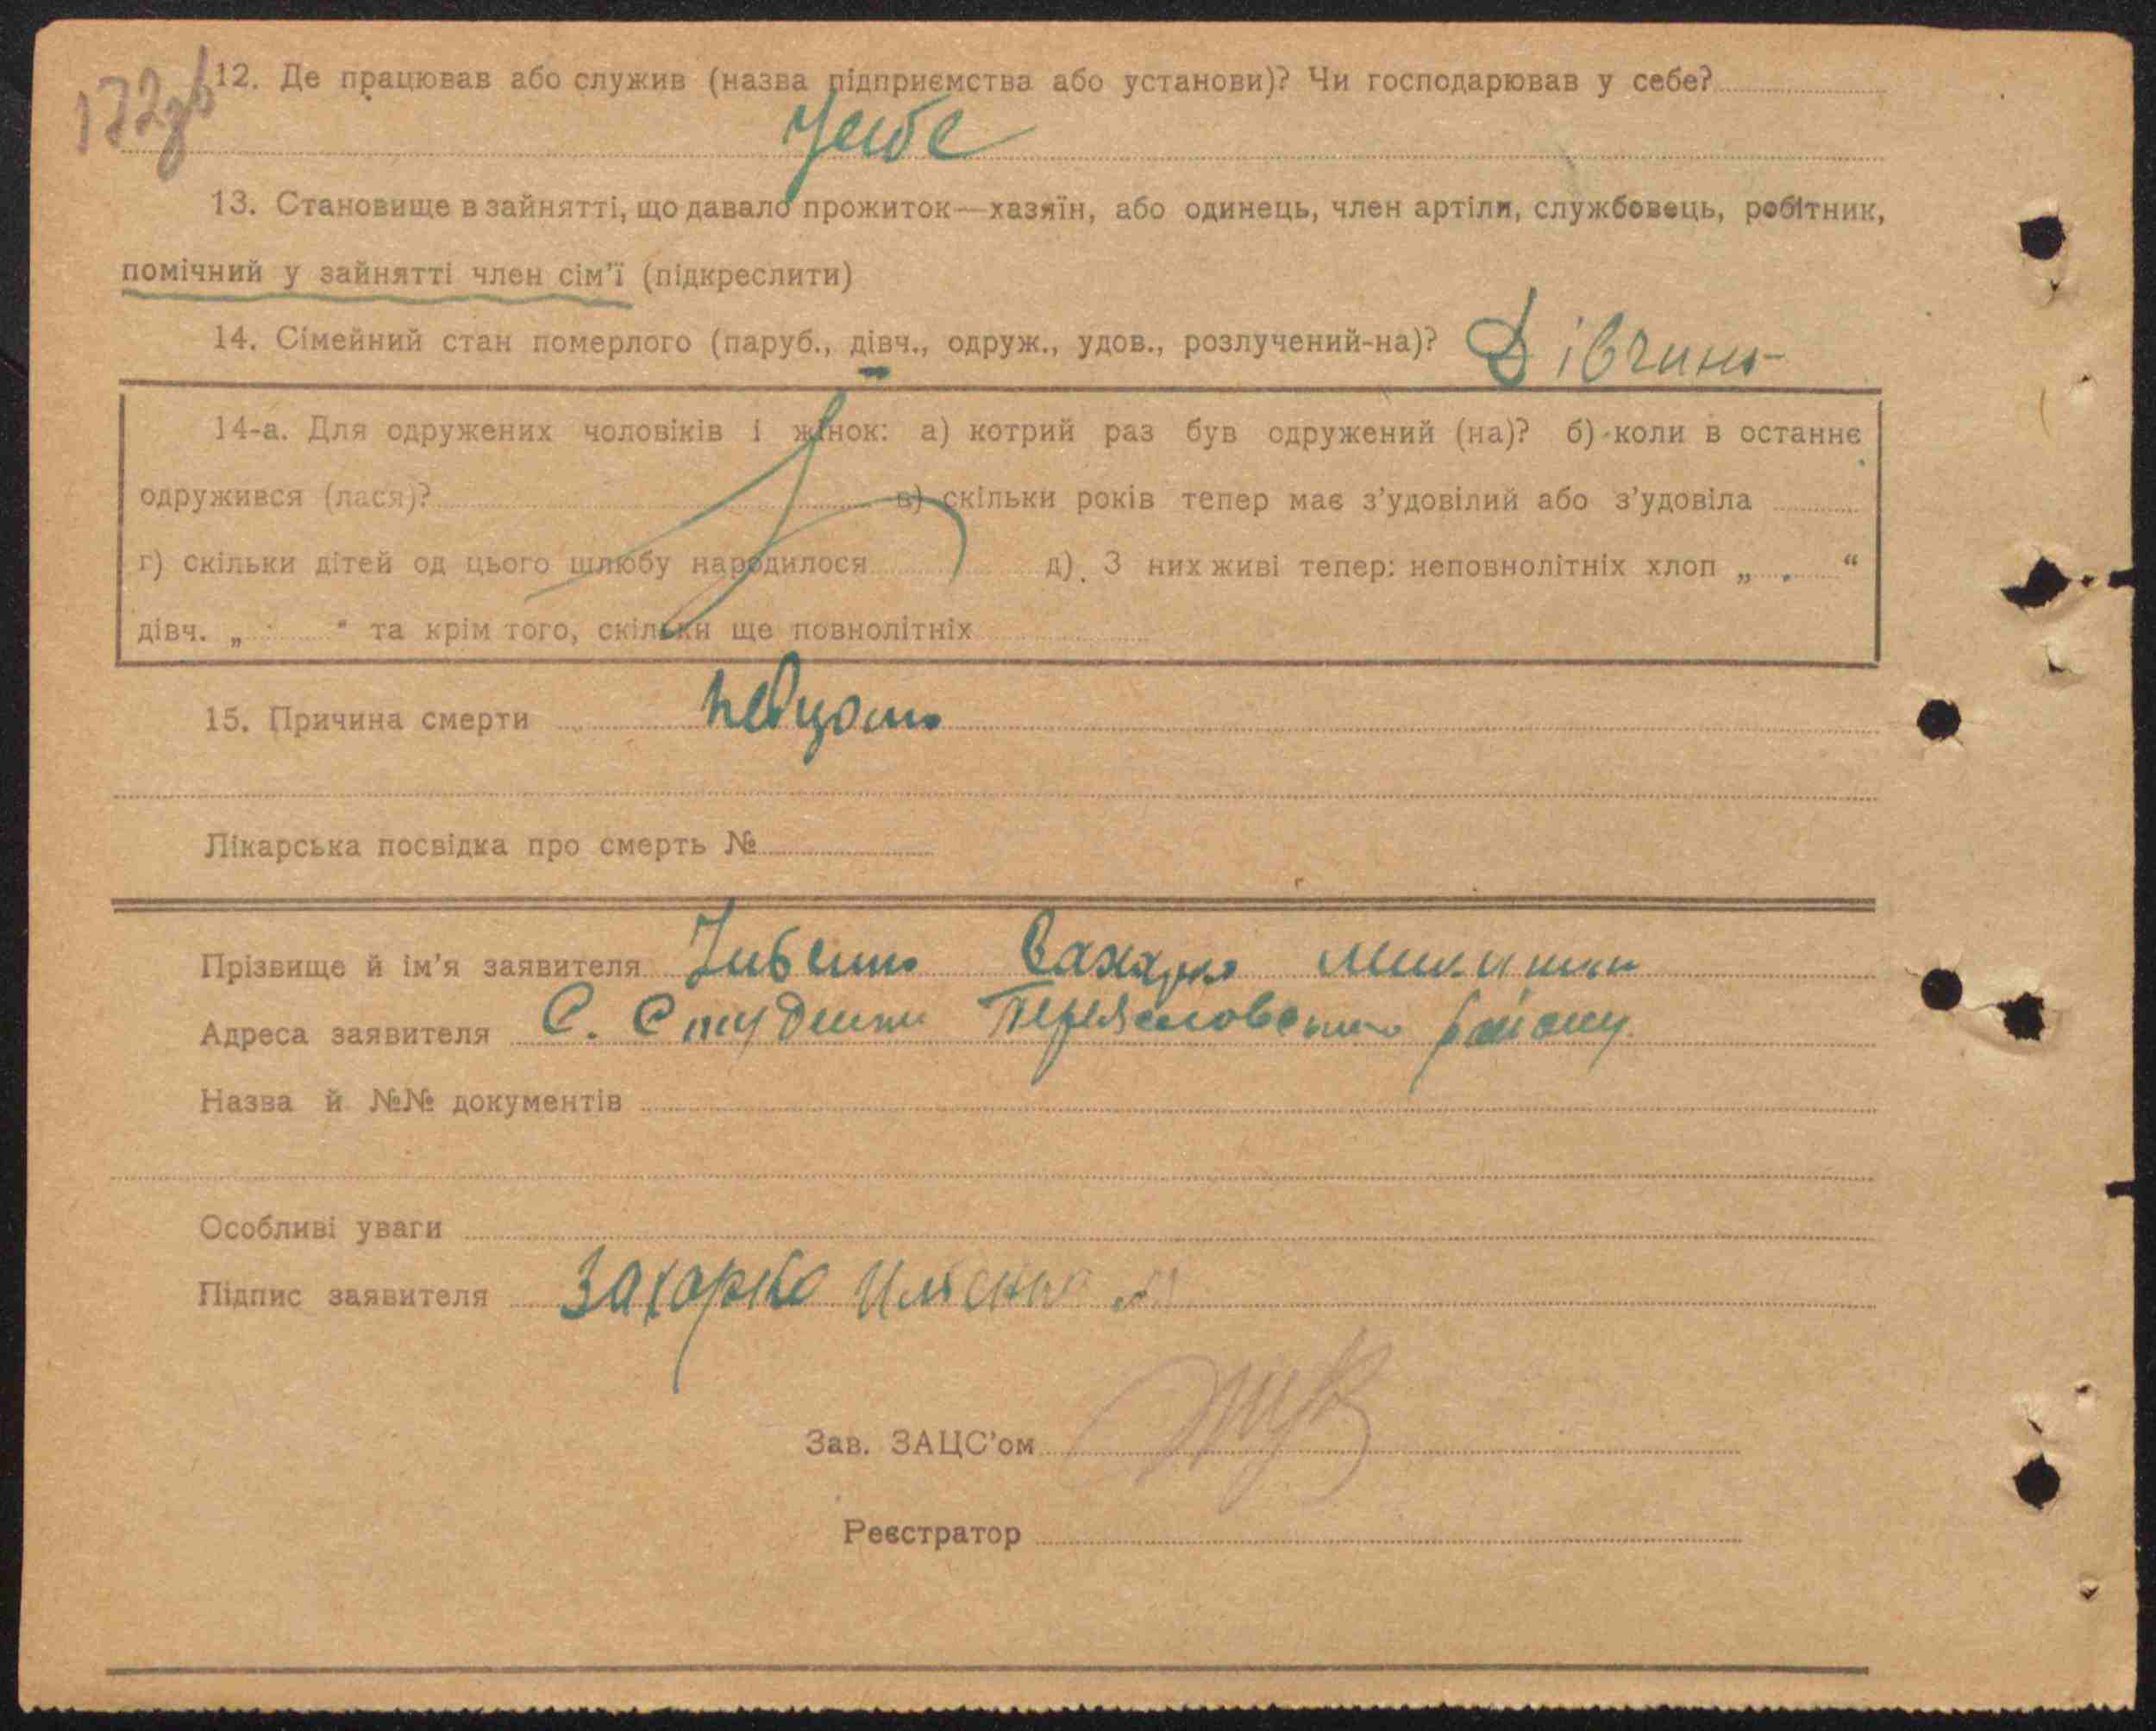 172зв
12. Де працював або служив (назва підприємства або установи)? Чи господарював у себе?
У себе
13. Становище в зайнятті, що давало прожиток—хазяїн, або одинець, член артіли, службовець, робітник,
помічний у зайнятті член сім'ї (підкреслити)
14. Сімейний стан померлого (паруб., дівч., одруж., удов., розлучений-на)? Дівчина
14-а. Для одружених чоловіків і жінок: а) котрий раз був одружений (на)? б) коли в останнє
одружився (лася)? в) скільки років тепер має з'удовілий або з'удовіла
г) скільки дітей од цього шлюбу народилося д). З них живі тепер: неповнолітніх хлоп „ “
дівч. „ “ та крім того, скільки ще повнолітніх
15. Причина смерти
Лікарська посвідка про смерть №
Прізвище й ім'я заявителя Захарко
Адреса заявителя С. Студеники Переяславського району.
Назва й №№ документів
Особливі уваги
Підпис заявителя Захарко
Зав. ЗАЦС'ом
Реєстратор